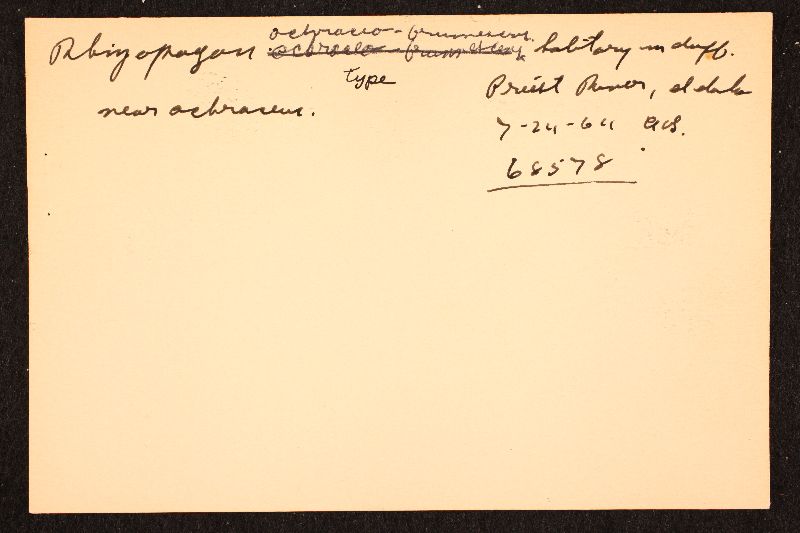 ochraceo-brunnescens.
Rhizopogon ocoraceo-brunnescens solitary in duff.
type
Priest River, Idaho
near ochraceus.
7-24-64 AHS.
68578